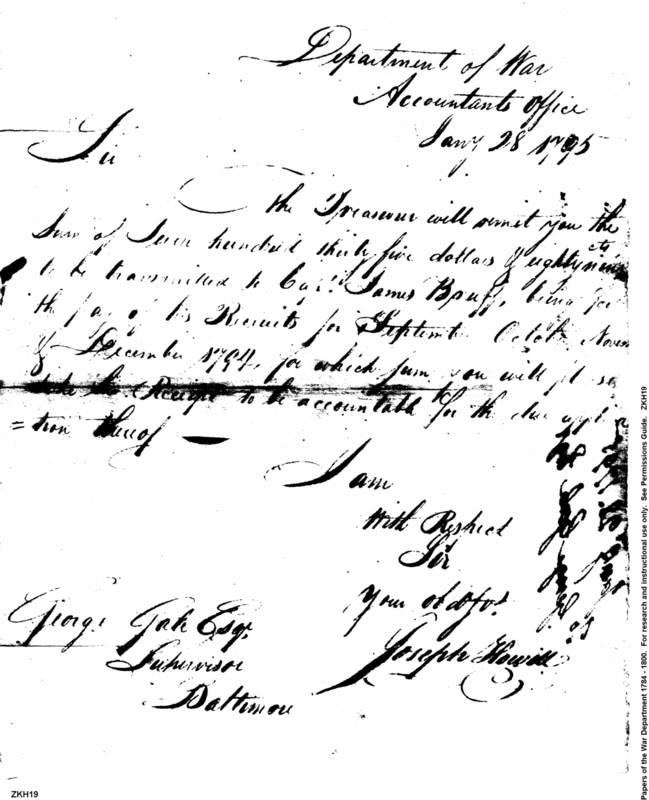 Department of War
Accountants Office
Jany 28 1795
Sir
the Treasurer will remit you the
Sum of Seven hundred thirty five dollars & eighty nine cts
to be transmitted to Capt. James Bruff, being for
the pay of his Recruits for Septemb. Octob. Novem
& December 1794, for which sum you will pl
take his Receipt to be accountable for the due appli
=tion thereof —
I am
With Respect
Sir
Your obd Sert
Joseph Howell
George Gale Esqr.
Supervisor
Baltimore
ZKH19
Papers of the War Department 1784 - 1800. For research and instructional use only. See Permissions Guide. ZKH19